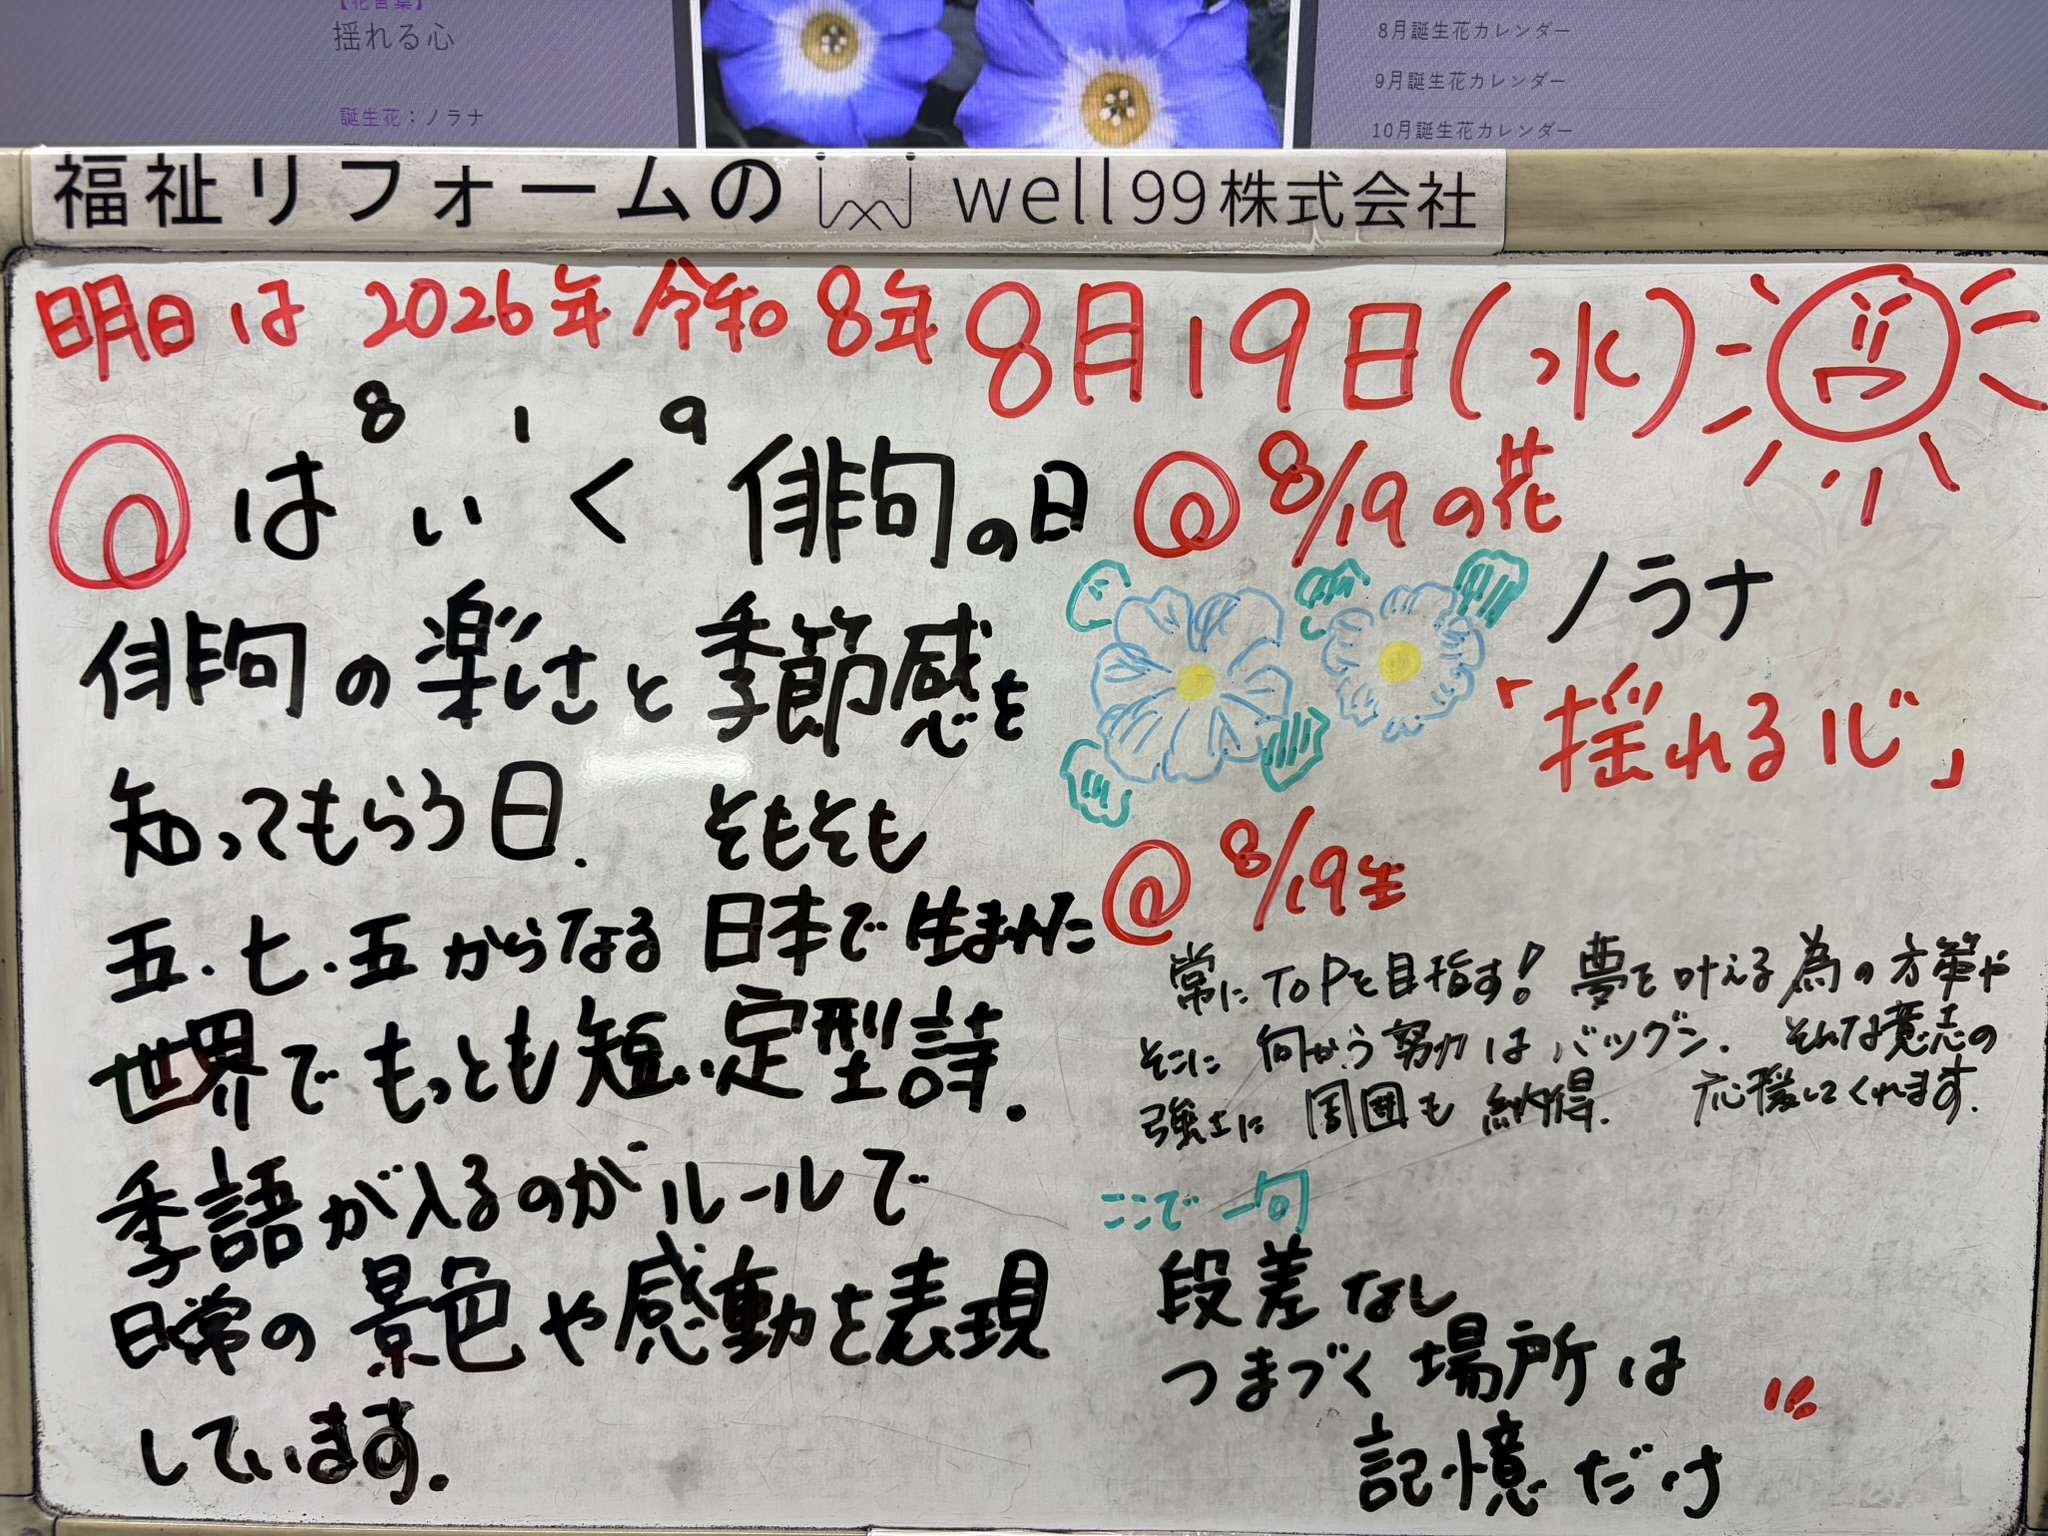 【花言葉】
揺れる心
誕生花：ノラナ
8月誕生花カレンダー
9月誕生花カレンダー
10月誕生花カレンダー
福祉リフォームの well99株式会社
明日は 2026年 令和8年 8月19日(水)
8 1 9
はいく 俳句の日
俳句の楽しさと季節感を
知ってもらう日. そもそも
五・七・五からなる日本で生まれた
世界でもっとも短い定型詩.
季語が入るのがルールで
日常の景色や感動を表現
しています.
@ 8/19の花
ノラナ
「揺れる心」
@ 8/19生
常にTOPを目指す! 夢を叶える為の方策や
そこに向かう努力はバツグン. そんな意志の
強さに周囲も納得. 応援してくれます.
ここで一句
段差なし
つまづく場所は
記憶だけ